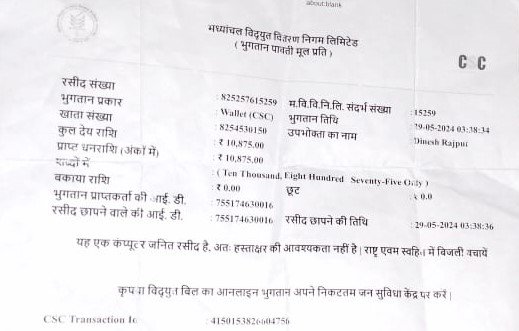 about:blank
मध्यांचल विद्युत वितरण निगम लिमिटेड
( भुगतान पावती मूल प्रति )
C C
रसीद संख्या : 825257615259 म.वि.वि.नि.लि. संदर्भ संख्या :15259
भुगतान प्रकार : Wallet (CSC) भुगतान तिथि :29-05-2024 03:38:34
खाता संख्या : 8254530150 उपभोक्ता का नाम Dinesh Rajput
कुल देय राशि : ₹ 10,875.00
प्राप्त धनराशि (अकों में) : ₹ 10,875.00
शब्दों में : ( Ten Thousand, Eight Hundred Seventy-Five Only )
बकाया राशि : ₹ 0.00 छूट : ₹ 0.0
भुगतान प्राप्तकर्ता की आई. डी. : 755174630016
रसीद छापने वाले की आई. डी. : 755174630016 रसीद छापने की तिथि : 29-05-2024 03:38:36
यह एक कंप्यूटर जनित रसीद है, अतः हस्ताक्षर की आवश्यकता नहीं है | राष्ट्र एवम स्वहित में बिजली बचायें
कृपया विद्युत बिल का आनलाइन भुगतान अपने निकटतम जन सुविधा केंद्र पर करें |
CSC Transaction Id : 4150153826604756